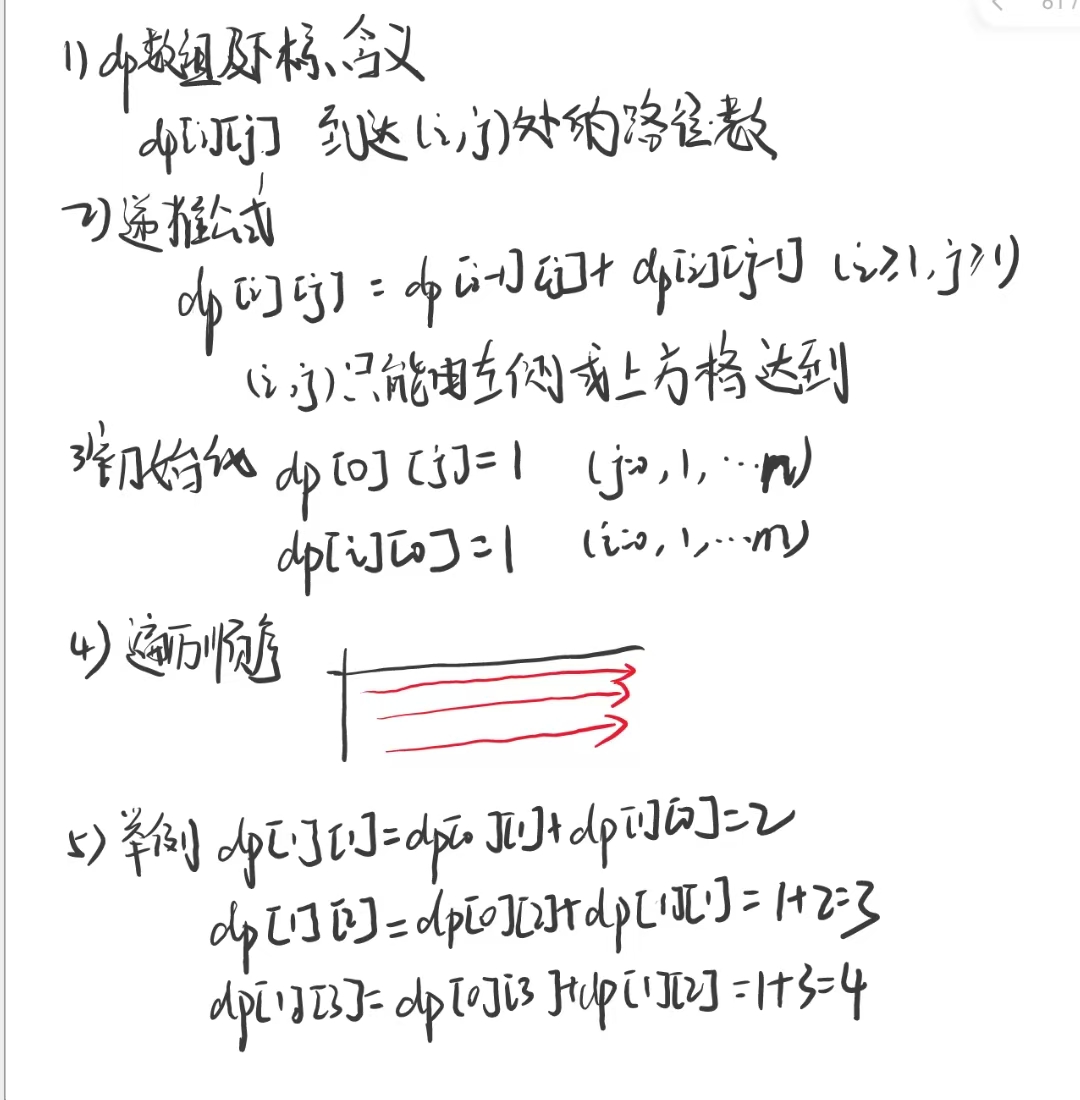 1) dp数组及下标、含义
dp[i][j] 到达(i,j)处的路径数
2) 递推公式
dp[i][j] = dp[i-1][j] + dp[i][j-1] (i≥1,j≥1)
(i,j)只能由左侧或上方格达到
3) 初始化 dp[0][j]=1 (j=0,1,…n)
dp[i][0]=1 (i=0,1,…m)
4) 遍历顺序
5) 举例 dp[1][1]=dp[0][1]+dp[1][0]=2
dp[1][2]=dp[0][2]+dp[1][1]=1+2=3
dp[1][3]=dp[0][3]+dp[1][2]=1+3=4